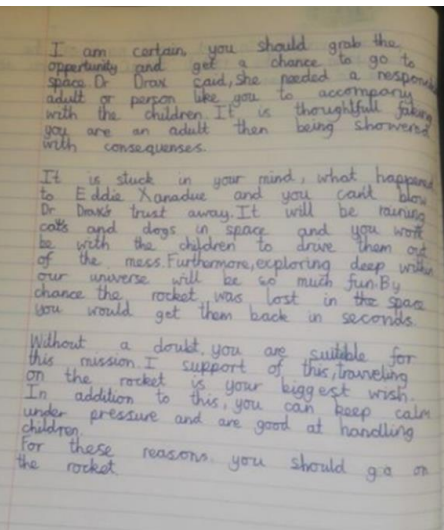 I am certain, you should grab the
opportunity and get a chance to go to
space. Dr Drax said, she needed a respons
adult or person like you to accompany
with the children. It is thoughtfull faking
you are an adult then being showered
with consequenses.
It is stuck in your mind, what happened
to Eddie Xanadue and you can't blow
Dr Drax's trust away. It will be raining
cats and dogs in space and you wont
be with the children to drave them out
of the mess. Furthermore, exploring deep within
our universe will be so much fun. By
chance the rocket was lost in the space
you would get them back in seconds.
Without a doubt, you are suitible for
this mission. I support of this, traveling
on the rocket is your biggest wish.
In addition to this, you can keep calm
under pressure and are good at handling
children.
For these reasons, you should go on
the rocket.